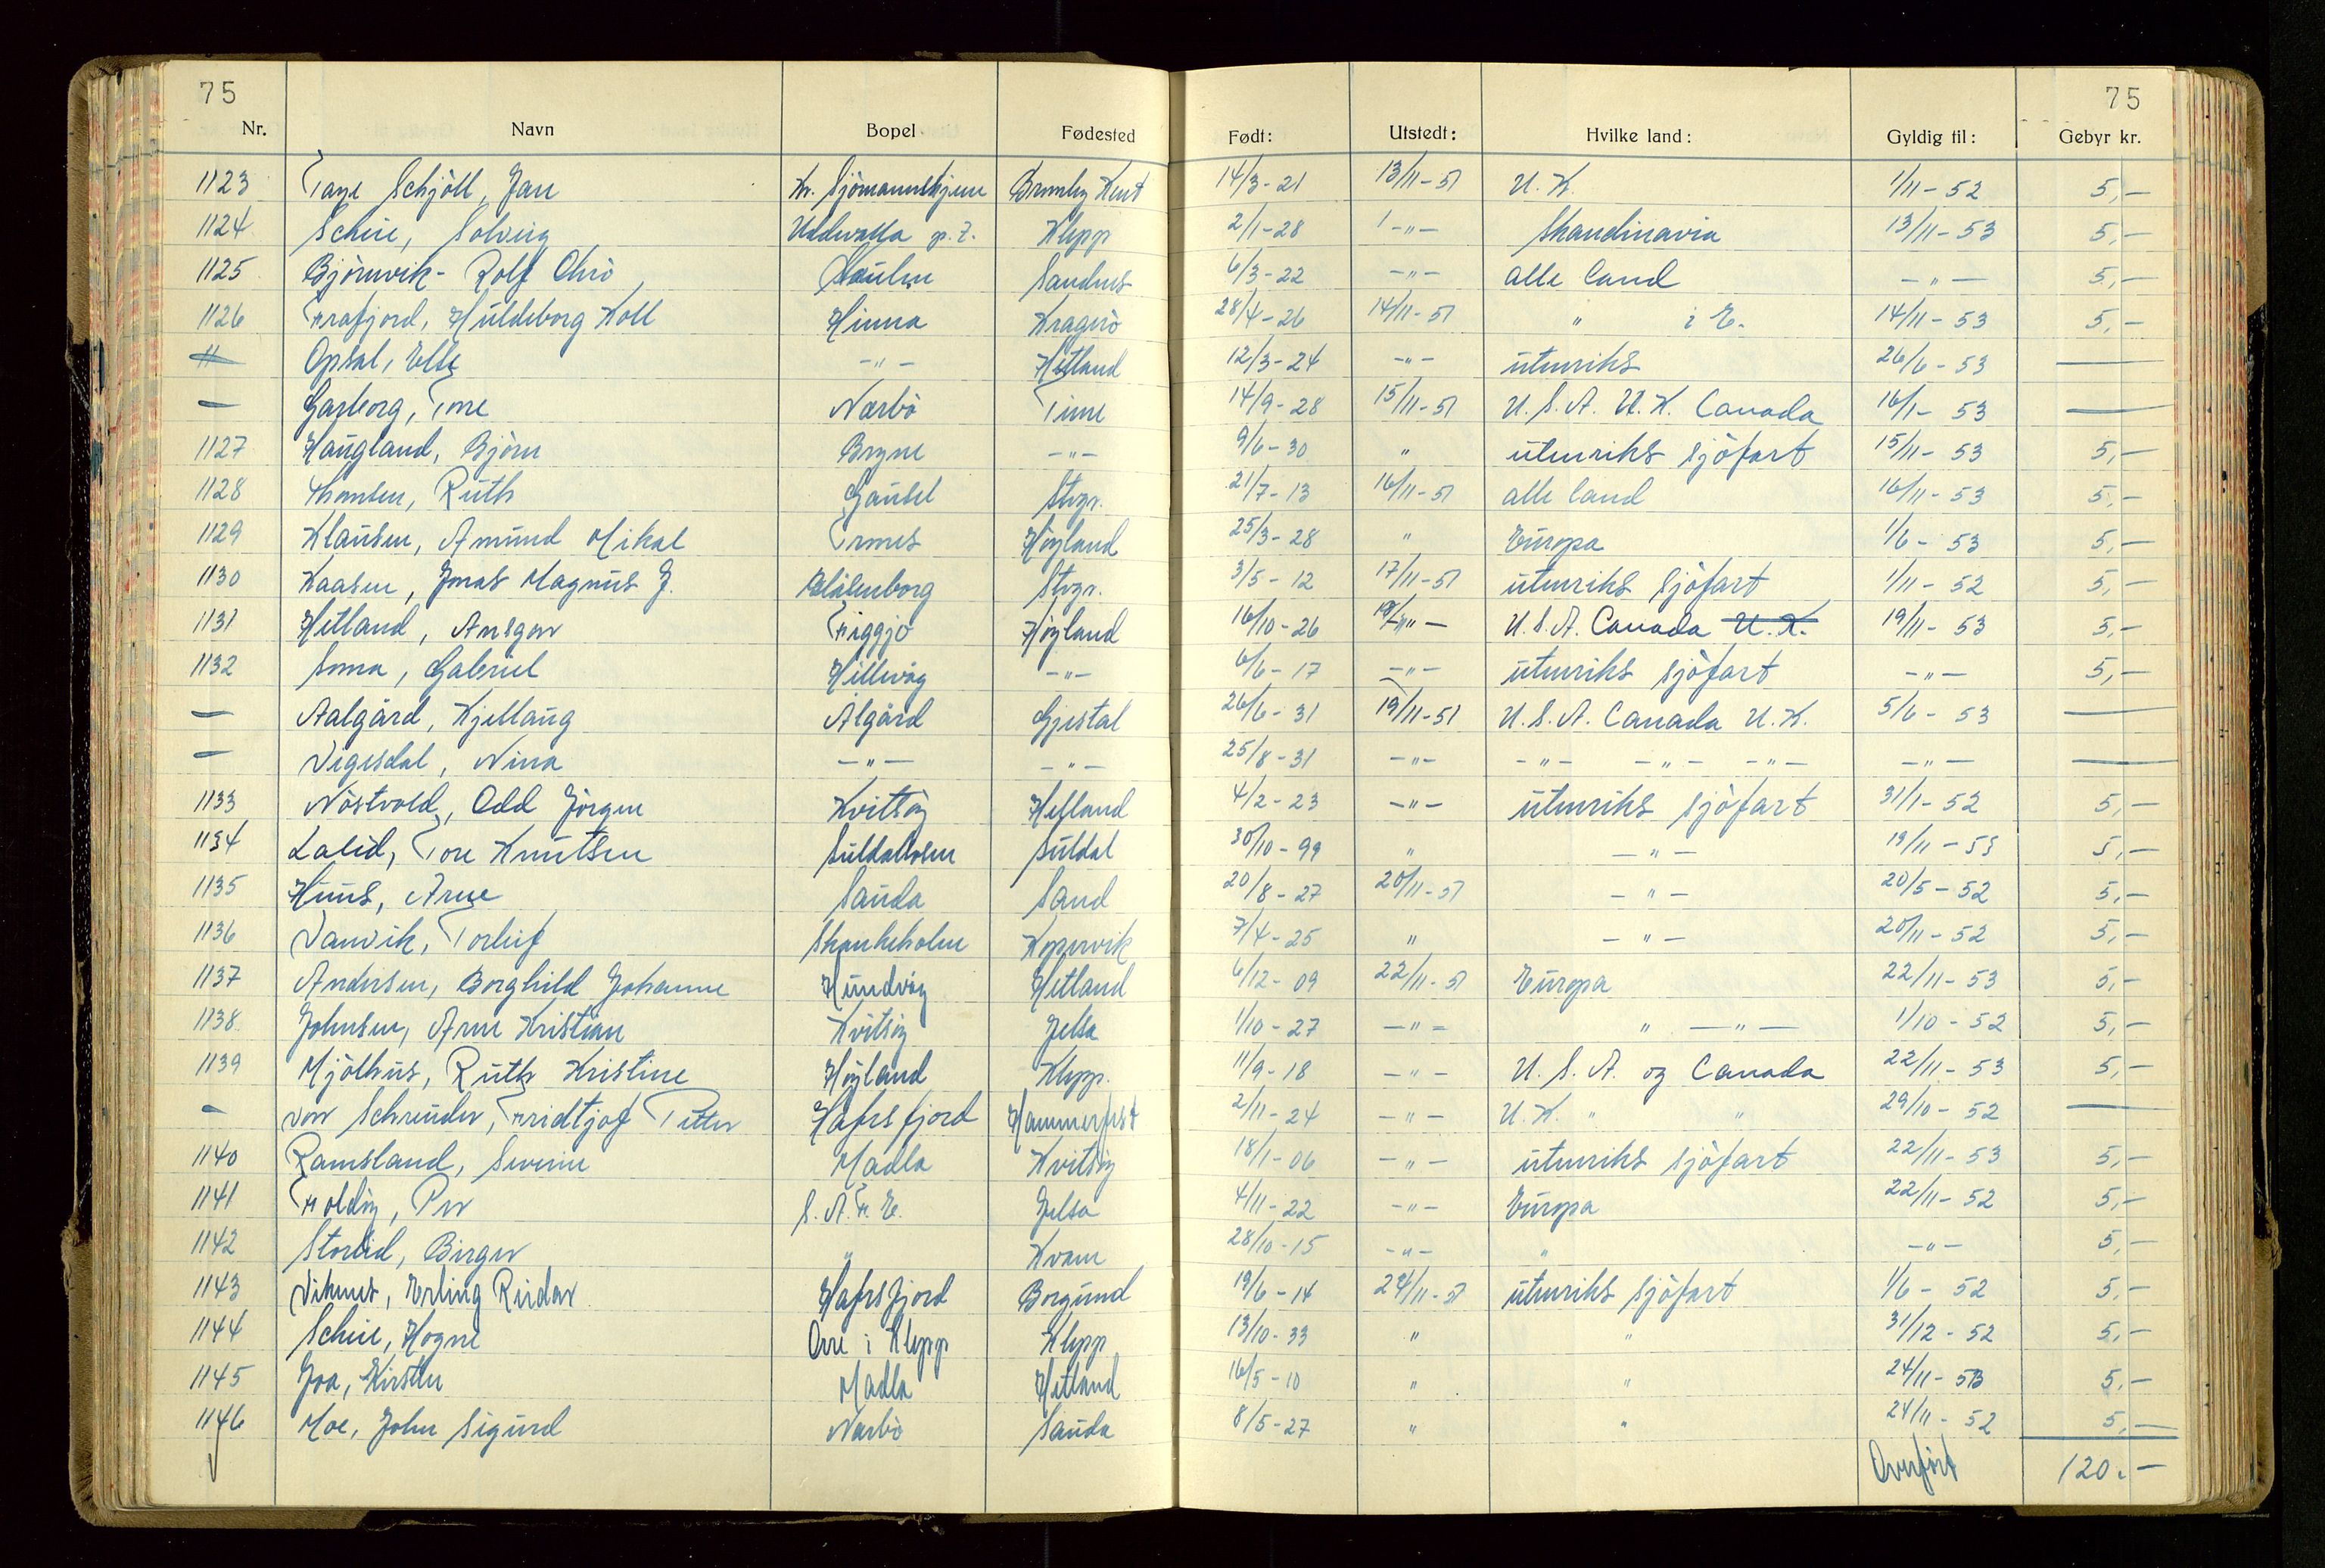 75 75
Nr. Navn Bopel Fødested Født: Utstedt: Hvilke land: Gyldig til: Gebyr kr.
1123 Schjöll, Jan Kr. Sjömannshjem Bromley Kent 14/3-21 13/11-51 U.K. 1/11-52 5,-
1124 Scheie, Solveig Uddevalla p.t. Klepp 2/1-28 -"- Skandinavia 13/11-53 5,-
1125 Björnvik- Rolf Sandnes 6/3-22 -"- alle land -"- 5,-
1126 Frafjord, Huldeborg Koll Hinna Kragerö 28/4-26 14/11-51 " i E. 14/11-53 5,-
Opsal, Elle -"- Hetland 12/3-24 -"- utenriks 26/6-53 —
— Garborg, Tone Nærbö Time 14/9-28 15/11-51 U.S.A. U.K. Canada 16/1-53 —
1127 Haugland, Björn Bryne -"- 9/6-30 " utenriks sjöfart 15/11-53 5,-
1128 Thomsen, Ruth Gausel Stvgr. 21/7-13 16/11-51 alle land 16/11-53 5,-
1129 Klausen, Amund Mikal Høyland 25/3-28 " Europa 1/6-53 5,-
1130 Kaasen, Jonas Magnus J. Blåsenborg Stvgr. 3/5-12 17/11-51 utenriks sjöfart 1/11-52 5,-
1131 Hetland, Ansgar Figgjo Høyland 16/10-26 19/11-"- U.S.A. Canada U.K. 19/11-53 5,-
1132 Soma, Gabriel Hillevåg -"- 6/6-17 -"- utenriks sjöfart -"- 5,-
— Aalgård, Kjellaug Ålgård Gjestal 26/6-31 19/11-51 U.S.A. Canada U.K. 5/6-53 —
— Vigesdal, Nina -"- -"- 25/8-31 -"- -"- -"- -"- -"- —
1133 Nöstvold, Odd Jörgen Kvitsöy Hetland 4/2-23 -"- utenriks sjöfart 31/1-52 5,-
1134 Lalid, Tore Knutsen Suldalsosen Suldal 30/10-99 " -"- 19/11-53 5,-
1135 Huus, Arne Sauda Sand 20/8-27 20/11-51 -"- 20/5-52 5,-
1136 Vanvik, Torleif Skankeholm Kopervik 7/4-25 " -"- 20/11-52 5,-
1137 Andersen, Borghild Johanne Hundvåg Hetland 6/12-09 22/11-51 Europa 22/11-53 5,-
1138 Johnsen, Arne Kristian Kvitsöy Jelsa 1/10-27 -"- " -"- 1/10-52 5,-
1139 Mjölhus, Ruth Kristine Høyland Klepp. 11/9-18 -"- U.S.A. og Canada 22/11-53 5,-
- von Schreuder, Fridtjof Petter Hafrsfjord Hammerfest 2/11-24 -"- U.K. " " 29/10-52 —
1140 Ramsland, Severin Madla Kvitsöy 18/1-06 -"- utenriks sjöfart 22/11-53 5,-
1141 Foldöy, Per S.A.F.E. Jelsa 4/11-22 -"- Europa 22/11-52 5,-
1142 Storlid, Birger " Kvam 28/10-15 -"- " -"- 5,-
1143 Viknes, Erling Reidar Hafrsfjord Borgund 19/6-14 24/11-51 utenriks sjöfart 1/6-52 5,-
1144 Scheie, Hogne Orre i Klepp Klepp 13/10-33 " " 31/12-52 5,-
1145 Joa, Kirsten Madla Hetland 16/5-10 " " 24/11-53 5,-
1146 Moe, John Sigurd Nærbö Sauda 8/5-27 " " 24/11-52 5,-
Overfört 120.-